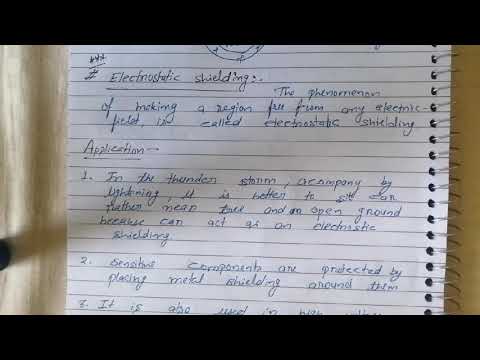 ***
# Electrostatic shielding:-
The phenomenon
of making a region free from any electric
field, is called electrostatic shielding
Application-
1. In the thunder storm, acompany by
lightening it is better to sit car
rather near tree and an open ground
because car act as an electrostic
shielding.
2. Sensitive components are protected by
placing metal shielding around them
3. It is also used in high